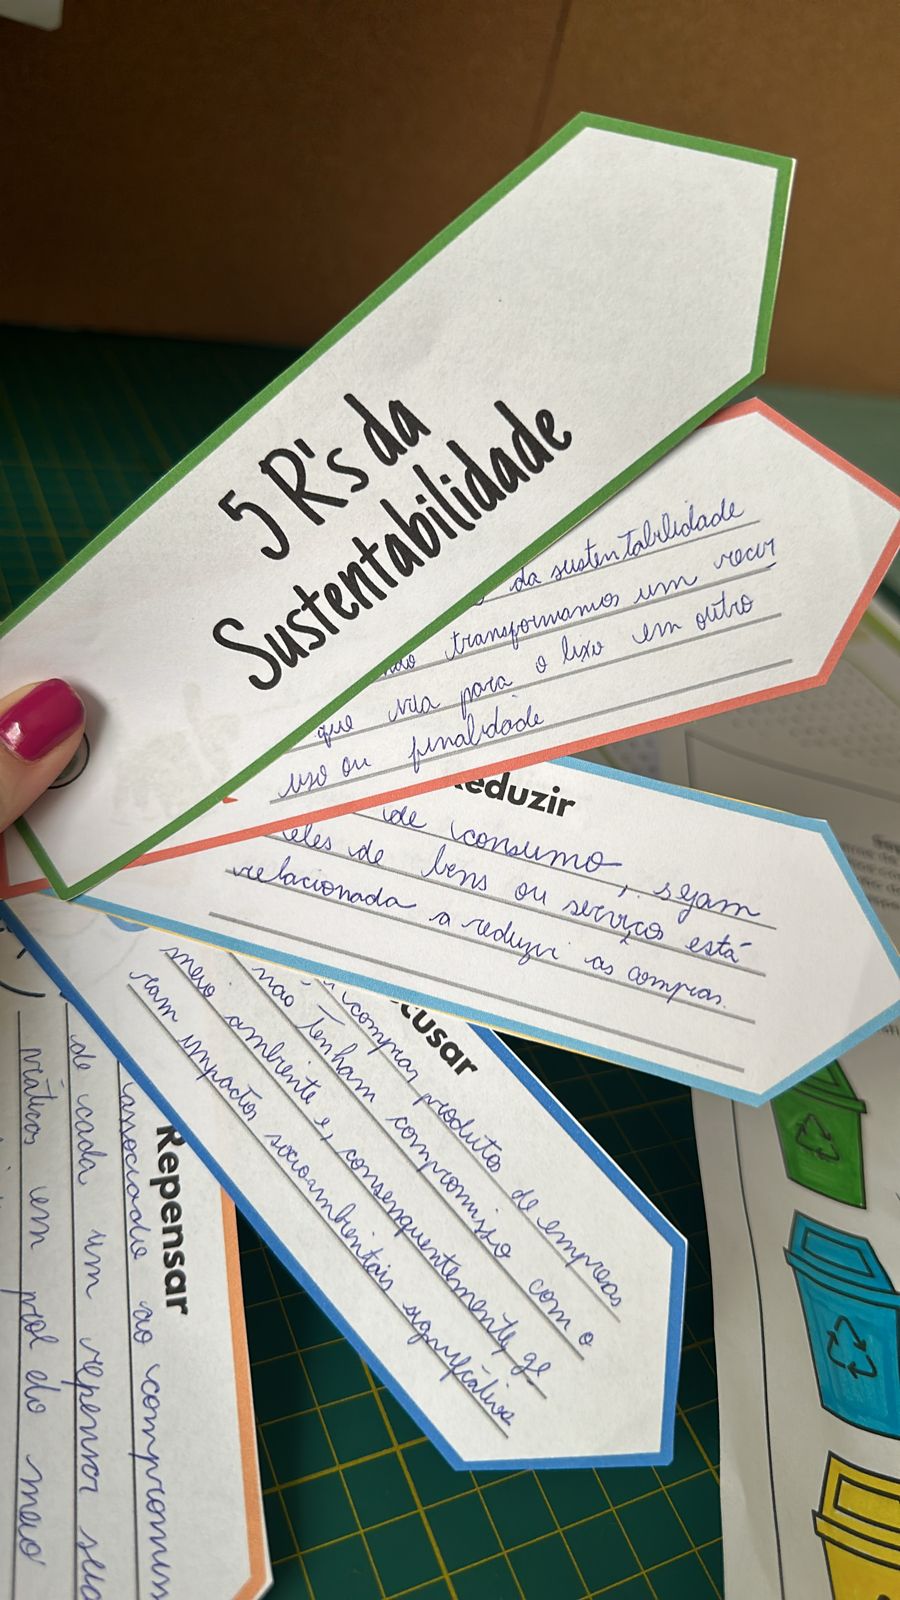 5 R's da
Sustentabilidade
da sustentabilidade
transformamos um recur
que iria para o lixo em outro
uso ou finalidade
eduzir
de consumo, sejam
eles de bens ou serviços está
relacionada a reduzir as compras.
cusar
comprar produtos de empresas
não tenham compromisso com o
meio ambiente e, consenquentemente, ge
ram impactos socioambientais significativos
Repensar
associado ao compromis
de cada um repensar suas
práticas em prol do meio